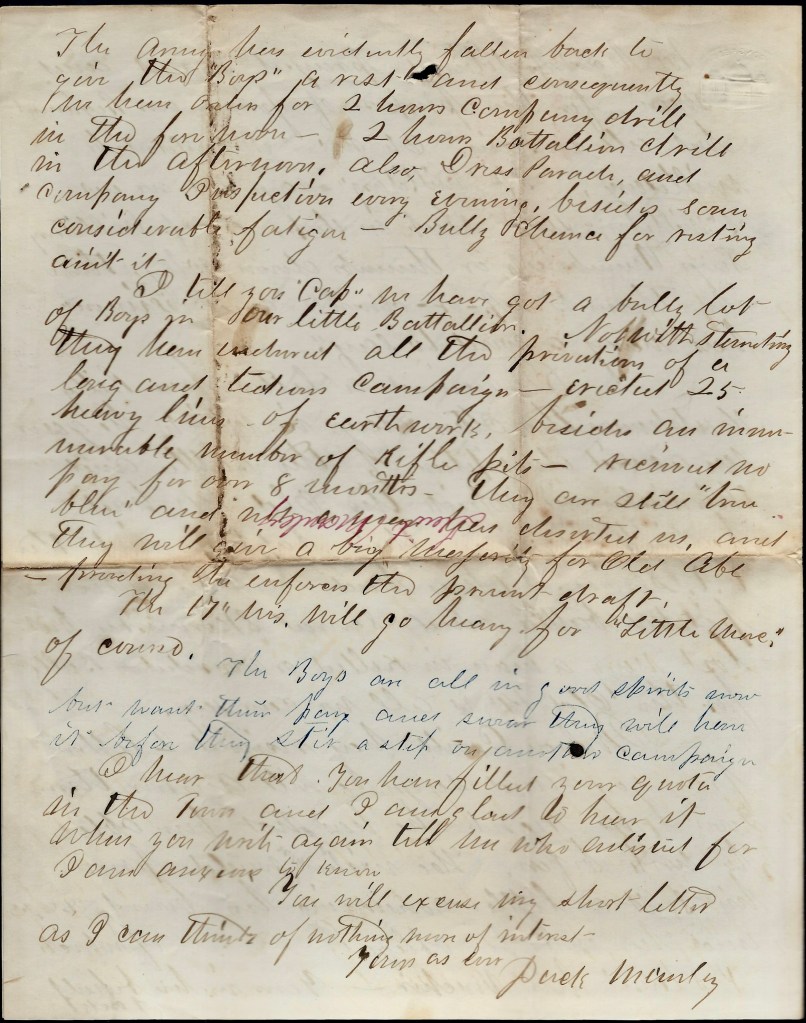 The Army has evidently fallen back to
give the "Boys" a rest and consequently
We have orders for 2 hours Company drill
in the forenoon — 2 hours Battallion drill
in the afternoon, also, Dress Parade, and
company Inspection every evening, besides some
considerable fatigue — Bully chance for resting
aint it
I tell you "Cap" we have got a bully lot
of Boys in our little Battallion. Notwithstanding
they have endured all the privations of a
long and tedious campaign — erected 25
heavy lines of earthworks, besides an innu-
merable number of Rifle pits — received no
pay for over 8 months — They are still "true
blue" and not a man has deserted us, and
they will give a big majority for Old Abe
— providing he enforces the present draft.
The 17" Wis. will go heavy for "Little Mac,"
of course.
The Boys are all in good spirits now
but want their pay and swear they will have
it before they stir a step on another campaign
I hear that You have filled your quota
in the Town and I am glad to hear it
When you write again tell me who enlisted for
I am anxious to know
You will excuse my short letter
as I can think of nothing more of interest
Yours as ever
Manley